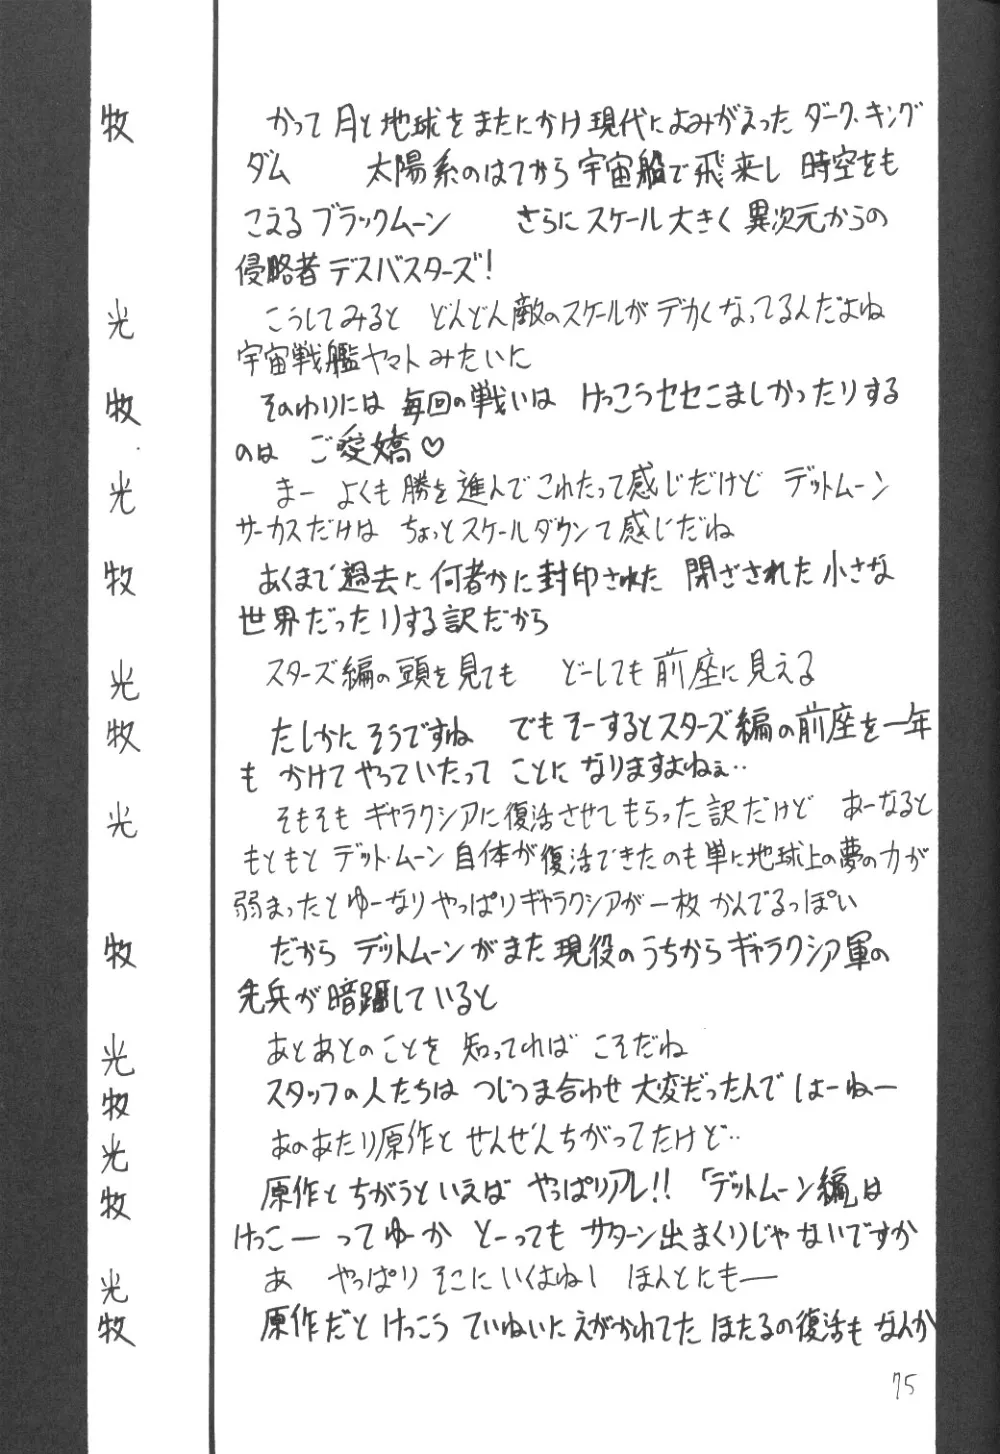 牧 かって月と地球をまたにかけ現代によみがえったダーク.キング
ダム 太陽系のはてから宇宙船で飛来し 時空をも
こえるブラックムーン さらにスケール大きく異次元からの
侵略者デスバスターズ!
光 こうしてみると どんどん敵のスケールがデカくなってるんだよね
宇宙戦艦ヤマトみたいに
牧 そのわりには 毎回の戦いは けっこうセセこましかったりする
のは ご愛嬌♡
光 まー よくも勝を進んでこれたって感じだけど デットムーン
サーカスだけは ちょっとスケールダウンて感じだね
牧 あくまで過去に何者かに封印された 閉ざされた小さな
世界だったりする訳だから
光 スターズ編の頭を見ても どーしても前座に見える
牧 たしかにそうですね でもそーするとスターズ編の前座を一年
も かけてやっていたって ことに なりますよねぇ‥
光 そもそも ギャラクシアに復活させてもらった訳だけど あーなると
もともと デット・ムーン自体が復活できたのも単に地球上の夢の力が
弱まったとゆーなりやっぱりギャラクシアが一枚かんでるっぽい
牧 だから デットムーンがまた現役のうちからギャラクシア軍の
先兵が暗躍していると
光 あとあとのことを 知ってればこそだね
牧 スタッフの人たちは つじつま合わせ大変だったんでしょーねー
光 あのあたり原作と ぜんぜんちがってたけど‥
牧 原作とちがうといえば やっぱりアレ!!「デットムーン編」は
けっこーってゆーか とーってもサターン出まくりじゃないですか
光 あ やっぱり そこにいくはねし ほんとにもー
牧 原作だと けっこう ていねいにえがかれてた ほたるの復活も なんか
75